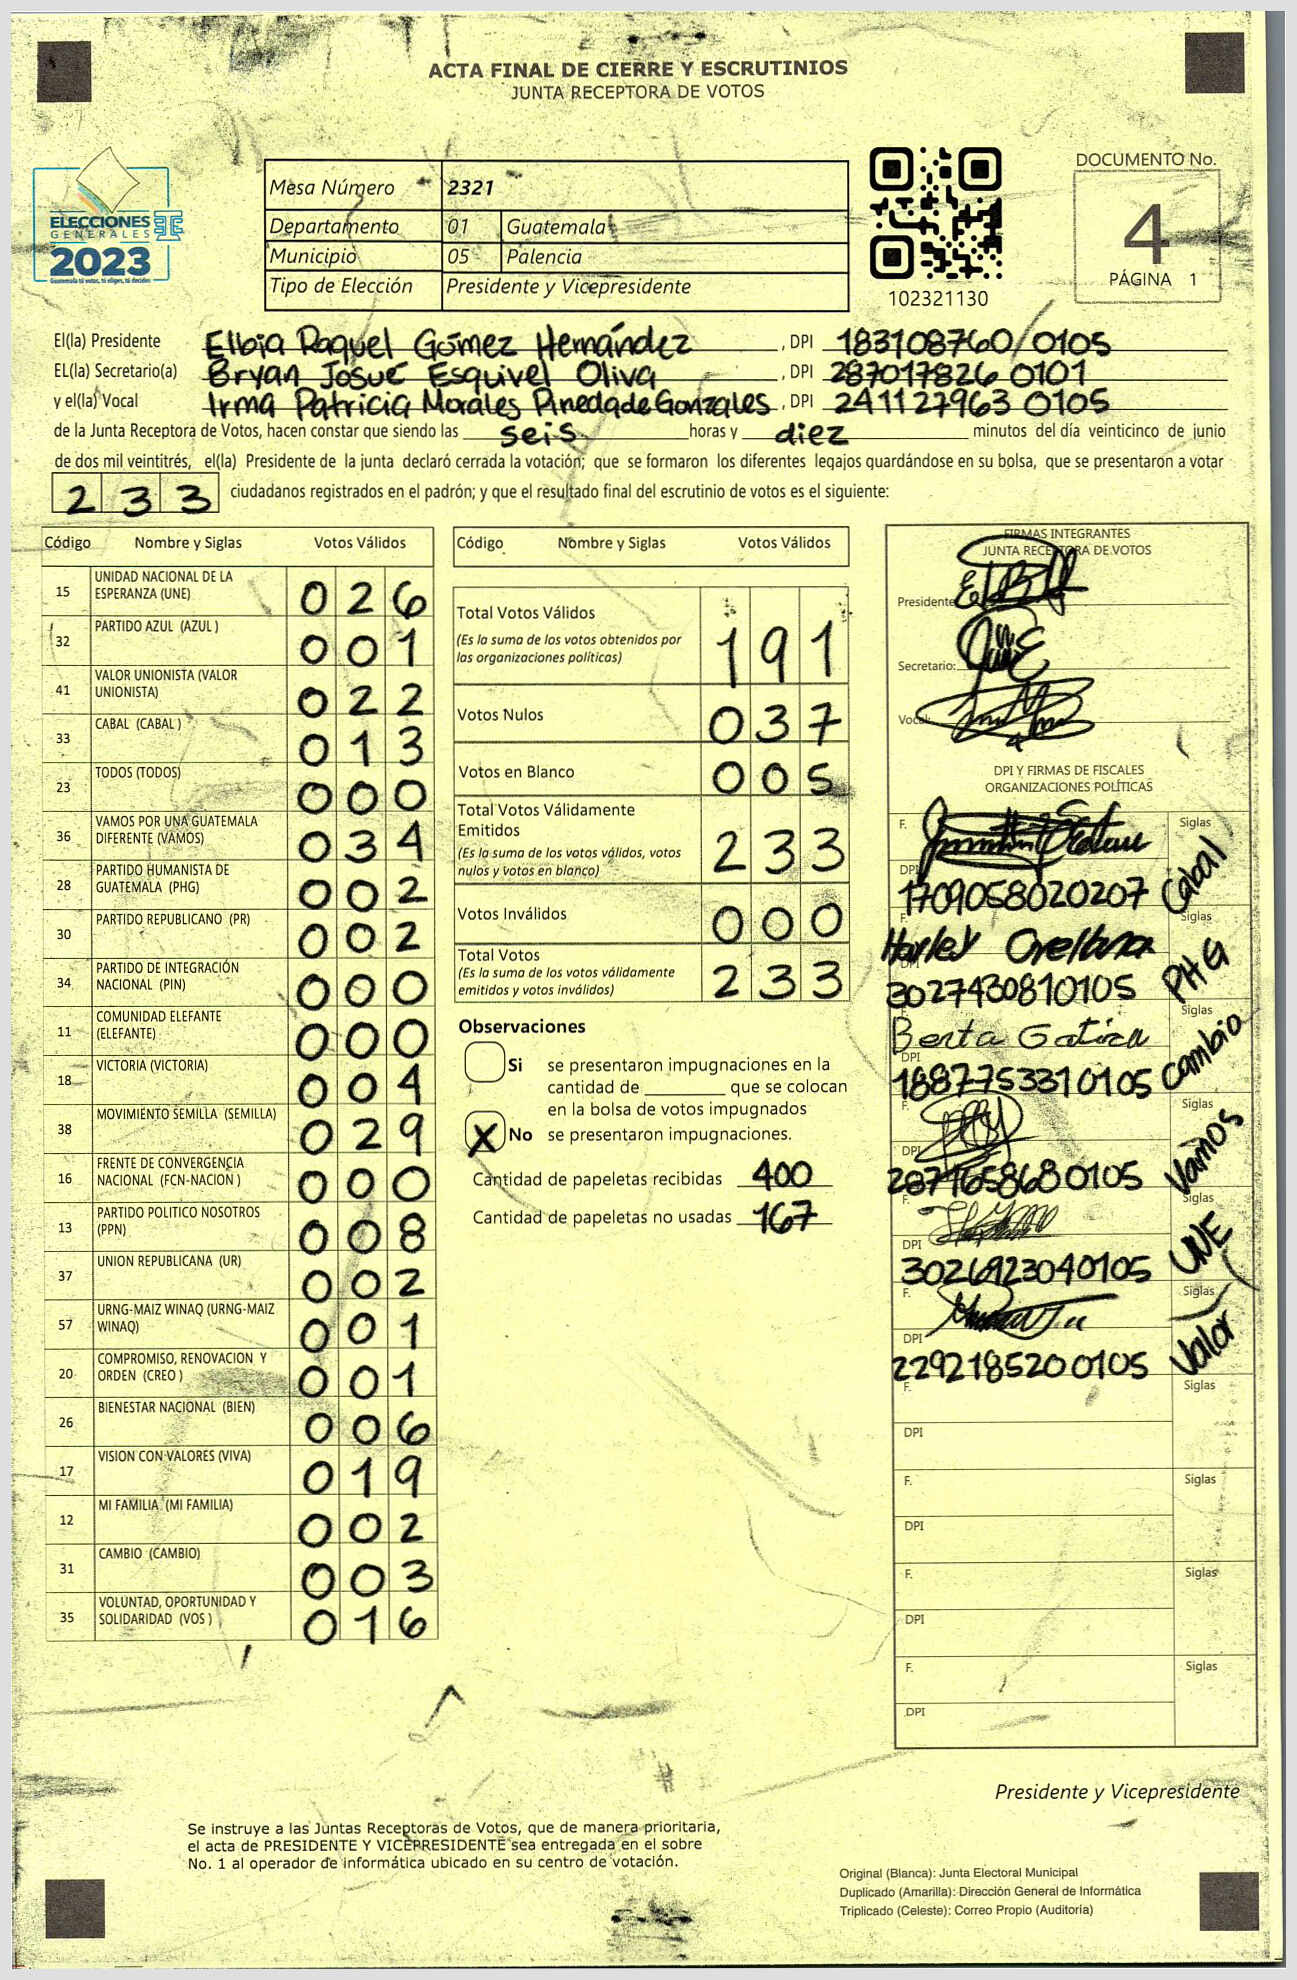 ACTA FINAL DE CIERRE Y ESCRUTINIOS
JUNTA RECEPTORA DE VOTOS
ELECCIONES
GENERALES
2023
Guatemala tú votas, tú eliges, tú decides
Mesa Número 2321
Departamento 01 Guatemala
Municipio 05 Palencia
Tipo de Elección Presidente y Vicepresidente
102321130
DOCUMENTO No.
4
PÁGINA 1
El(la) Presidente Elbia Raquel Gómez Hernández , DPI 183108760/0105
EL(la) Secretario(a) Bryan Josué Esquivel Oliva , DPI 287017826 0101
y el(la) Vocal Irma Patricia Morales Pineda de Gonzales , DPI 241127963 0105
de la Junta Receptora de Votos, hacen constar que siendo las seis horas y diez minutos del día veinticinco de junio
de dos mil veintitrés, el(la) Presidente de la junta declaró cerrada la votación; que se formaron los diferentes legajos guardándose en su bolsa, que se presentaron a votar
233 ciudadanos registrados en el padrón; y que el resultado final del escrutinio de votos es el siguiente:
Código Nombre y Siglas Votos Válidos
15 UNIDAD NACIONAL DE LA ESPERANZA (UNE) 026
32 PARTIDO AZUL (AZUL ) 001
41 VALOR UNIONISTA (VALOR UNIONISTA) 022
33 CABAL (CABAL ) 013
23 TODOS (TODOS) 000
36 VAMOS POR UNA GUATEMALA DIFERENTE (VAMOS) 034
28 PARTIDO HUMANISTA DE GUATEMALA (PHG) 002
30 PARTIDO REPUBLICANO (PR) 002
34 PARTIDO DE INTEGRACIÓN NACIONAL (PIN) 000
11 COMUNIDAD ELEFANTE (ELEFANTE) 000
18 VICTORIA (VICTORIA) 004
38 MOVIMIENTO SEMILLA (SEMILLA) 029
16 FRENTE DE CONVERGENCIA NACIONAL (FCN-NACION ) 000
13 PARTIDO POLITICO NOSOTROS (PPN) 008
37 UNION REPUBLICANA (UR) 002
57 URNG-MAIZ WINAQ (URNG-MAIZ WINAQ) 001
20 COMPROMISO, RENOVACION Y ORDEN (CREO ) 001
26 BIENESTAR NACIONAL (BIEN) 006
17 VISION CON VALORES (VIVA) 019
12 MI FAMILIA (MI FAMILIA) 002
31 CAMBIO (CAMBIO) 003
35 VOLUNTAD, OPORTUNIDAD Y SOLIDARIDAD (VOS ) 016
Código Nombre y Siglas Votos Válidos
Total Votos Válidos 191
(Es la suma de los votos obtenidos por
las organizaciones políticas)
Votos Nulos 037
Votos en Blanco 005
Total Votos Válidamente
Emitidos 233
(Es la suma de los votos válidos, votos
nulos y votos en blanco)
Votos Inválidos 000
Total Votos 233
(Es la suma de los votos válidamente
emitidos y votos inválidos)
Observaciones
Si se presentaron impugnaciones en la
cantidad de ________ que se colocan
en la bolsa de votos impugnados
X No se presentaron impugnaciones.
Cantidad de papeletas recibidas 400
Cantidad de papeletas no usadas 167
FIRMAS INTEGRANTES
JUNTA RECEPTORA DE VOTOS
Presidente:
Secretario:
Vocal:
DPI Y FIRMAS DE FISCALES
ORGANIZACIONES POLÍTICAS
F. Siglas
DPI 1709058020207 Cabal
F. Harley Orellana Siglas
DPI 3027430810105 PHG
Berta Gatica Siglas
DPI 1887753310105 Cambio
F. Siglas
DPI 2871658680105 Vamos
F. Siglas
DPI 3026923040105 UNE
F. Siglas
DPI 2292185200105 Valor
F. Siglas
DPI
F. Siglas
DPI
F. Siglas
DPI
F. Siglas
DPI
Presidente y Vicepresidente
Se instruye a las Juntas Receptoras de Votos, que de manera prioritaria,
el acta de PRESIDENTE Y VICEPRESIDENTE sea entregada en el sobre
No. 1 al operador de informática ubicado en su centro de votación.
Original (Blanca): Junta Electoral Municipal
Duplicado (Amarilla): Dirección General de Informática
Triplicado (Celeste): Correo Propio (Auditoría)